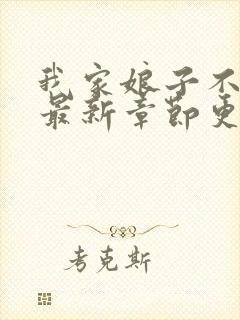 我家娘子不
最新章节更
考克斯